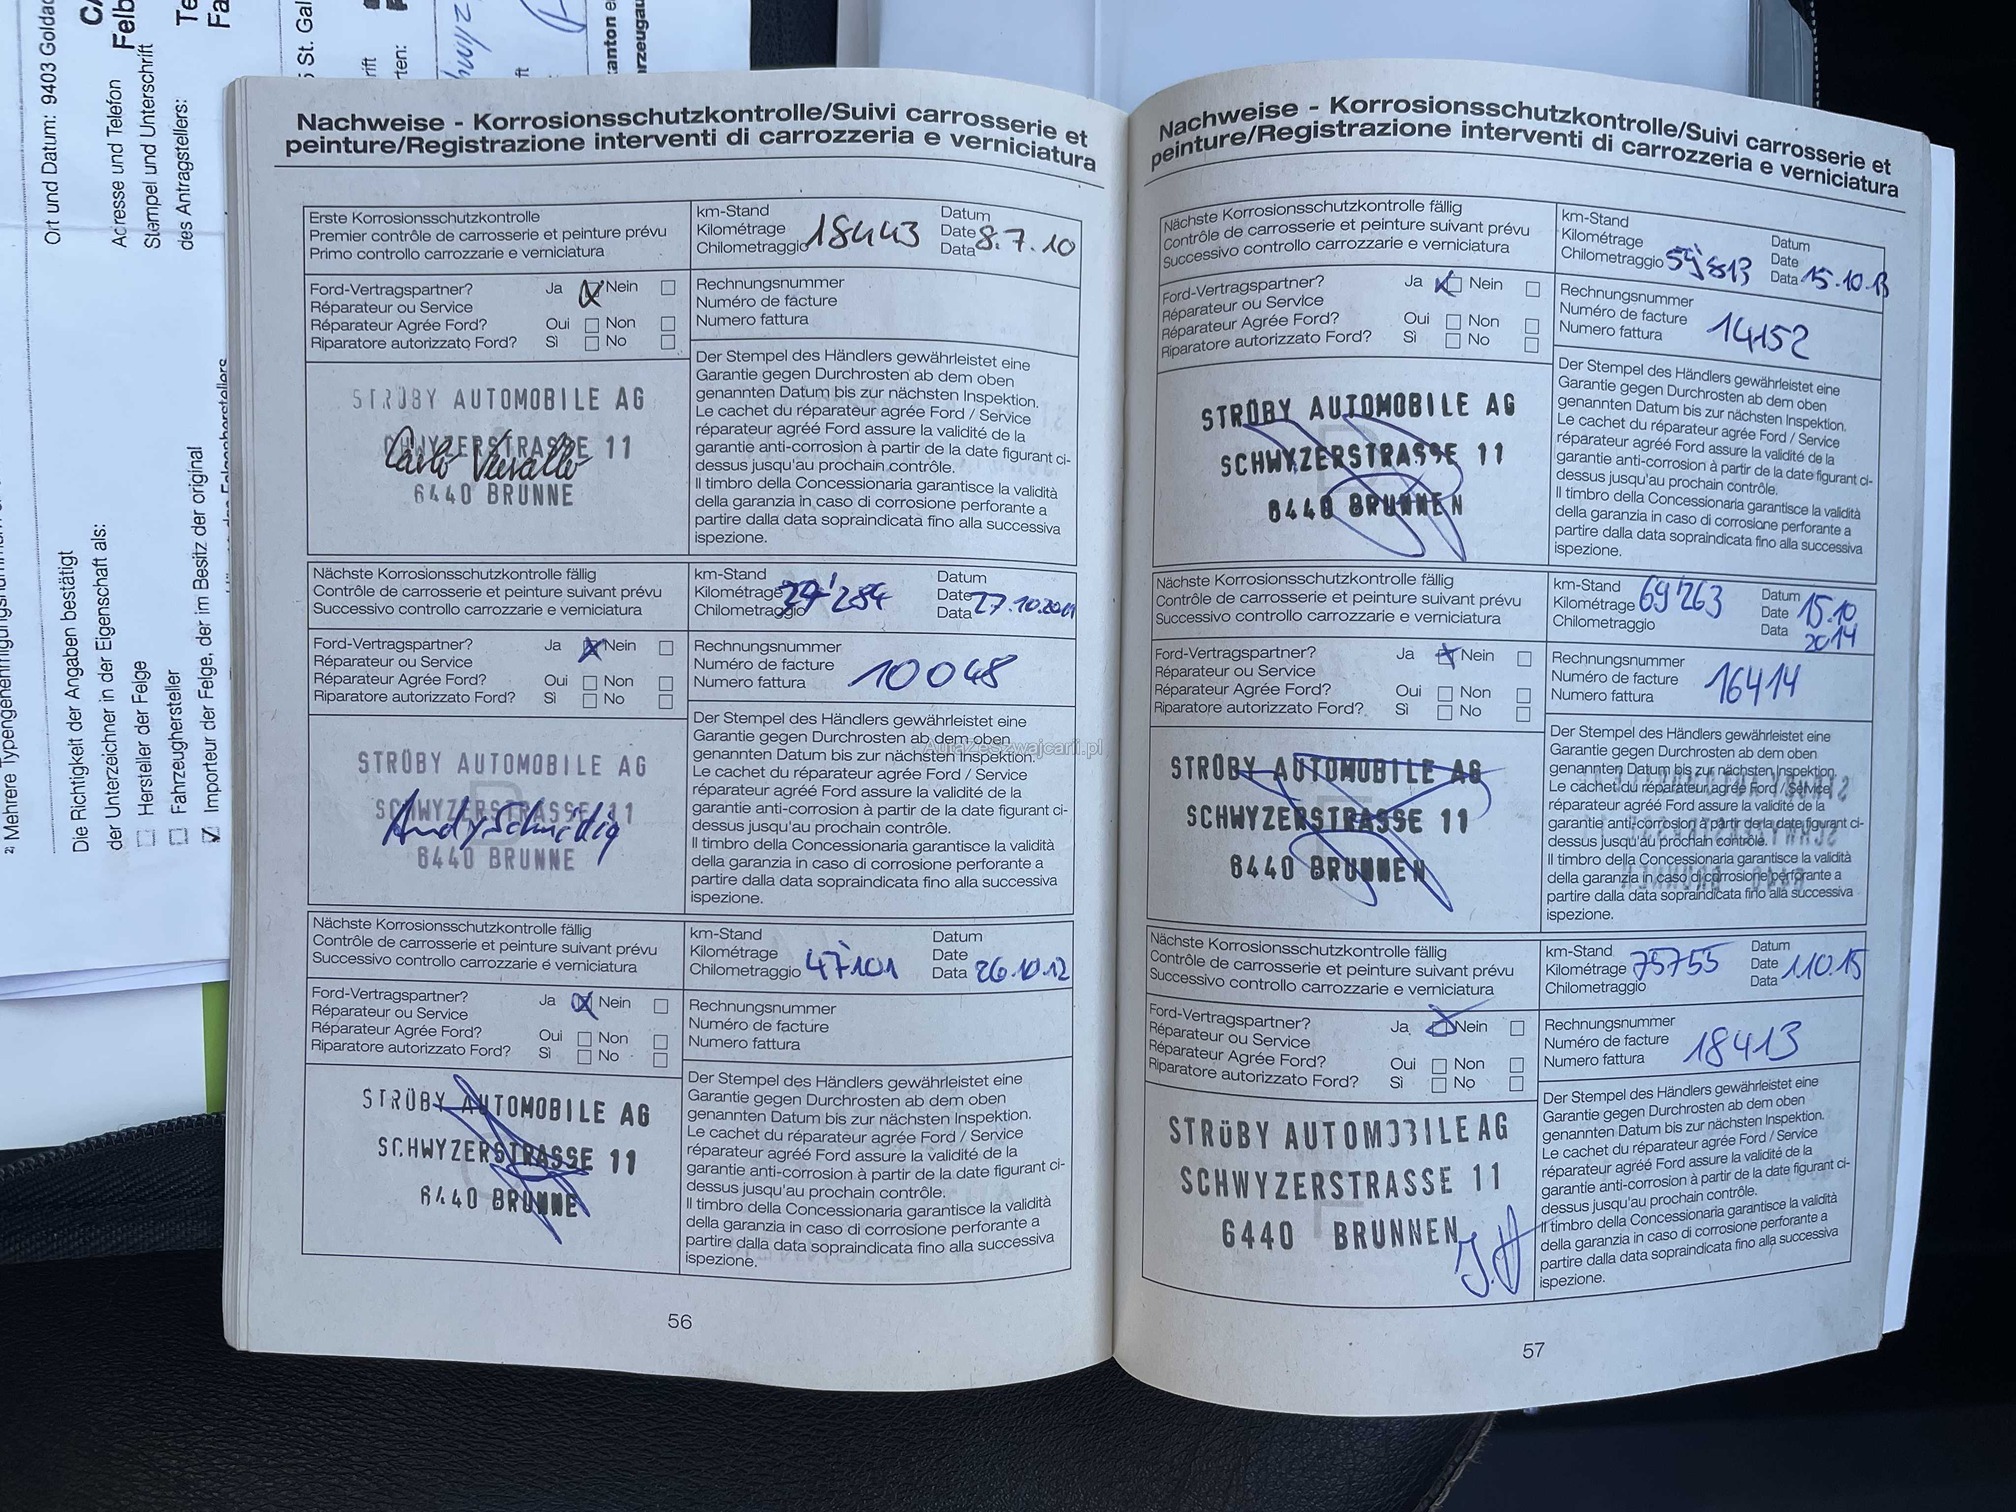 Ort und Datum: 9403 Goldac
Adresse und Telefon
Stempel und Unterschrift
des Antragstellers:
Felb
St. Gal
Die Richtigkeit der Angaben bestätigt
der Unterzeichner in der Eigenschaft als:
Hersteller der Felge
Fahrzeughersteller
Importeur der Felge, der im Besitz der original
Nachweise - Korrosionsschutzkontrolle/Suivi carrosserie et
peinture/Registrazione interventi di carrozzeria e verniciatura
Erste Korrosionsschutzkontrolle
Premier contrôle de carrosserie et peinture prévu
Primo controllo carrozzarie e verniciatura
km-Stand
Kilométrage
Chilometraggio 18443
Datum
Date
Data 8.7.10
Ford-Vertragspartner? Ja Nein
Réparateur ou Service
Réparateur Agrée Ford? Oui Non
Riparatore autorizzato Ford? Sì No
Rechnungsnummer
Numéro de facture
Numero fattura
STRÜBY AUTOMOBILE AG
CHWYZERSTRASSE 11
6440 BRUNNE
Der Stempel des Händlers gewährleistet eine
Garantie gegen Durchrosten ab dem oben
genannten Datum bis zur nächsten Inspektion.
Le cachet du réparateur agrée Ford / Service
réparateur agréé Ford assure la validité de la
garantie anti-corrosion à partir de la date figurant ci-
dessus jusqu'au prochain contrôle.
Il timbro della Concessionaria garantisce la validità
della garanzia in caso di corrosione perforante a
partire dalla data sopraindicata fino alla successiva
ispezione.
Nächste Korrosionsschutzkontrolle fällig
Contrôle de carrosserie et peinture suivant prévu
Successivo controllo carrozzarie e verniciatura
km-Stand
Kilométrage
Chilometraggio
Datum
Date
Data 27.10.2011
Ford-Vertragspartner? Ja Nein
Réparateur ou Service
Réparateur Agrée Ford? Oui Non
Riparatore autorizzato Ford? Sì No
Rechnungsnummer
Numéro de facture 10048
Numero fattura
STRÜBY AUTOMOBILE AG
SCHWYZERSTRASSE 11
Andy Schmidig
6440 BRUNNE
Der Stempel des Händlers gewährleistet eine
Garantie gegen Durchrosten ab dem oben
genannten Datum bis zur nächsten Inspektion.
Le cachet du réparateur agrée Ford / Service
réparateur agréé Ford assure la validité de la
garantie anti-corrosion à partir de la date figurant ci-
dessus jusqu'au prochain contrôle.
Il timbro della Concessionaria garantisce la validità
della garanzia in caso di corrosione perforante a
partire dalla data sopraindicata fino alla successiva
ispezione.
Nächste Korrosionsschutzkontrolle fällig
Contrôle de carrosserie et peinture suivant prévu
Successivo controllo carrozzarie e verniciatura
km-Stand
Kilométrage
Chilometraggio 47'101
Datum
Date
Data 26.10.12
Ford-Vertragspartner? Ja Nein
Réparateur ou Service
Réparateur Agrée Ford? Oui Non
Riparatore autorizzato Ford? Sì No
Rechnungsnummer
Numéro de facture
Numero fattura
STRÜBY AUTOMOBILE AG
SCHWYZERSTRASSE 11
6440 BRUNNE
Der Stempel des Händlers gewährleistet eine
Garantie gegen Durchrosten ab dem oben
genannten Datum bis zur nächsten Inspektion.
Le cachet du réparateur agrée Ford / Service
réparateur agréé Ford assure la validité de la
garantie anti-corrosion à partir de la date figurant ci-
dessus jusqu'au prochain contrôle.
Il timbro della Concessionaria garantisce la validità
della garanzia in caso di corrosione perforante a
partire dalla data sopraindicata fino alla successiva
ispezione.
56
Nachweise - Korrosionsschutzkontrolle/Suivi carrosserie et
peinture/Registrazione interventi di carrozzeria e verniciatura
Nächste Korrosionsschutzkontrolle fällig
Contrôle de carrosserie et peinture suivant prévu
Successivo controllo carrozzarie e verniciatura
km-Stand
Kilométrage
Chilometraggio 59'813
Datum
Date
Data 15.10.13
Ford-Vertragspartner? Ja Nein
Réparateur ou Service
Réparateur Agrée Ford? Oui Non
Riparatore autorizzato Ford? Sì No
Rechnungsnummer
Numéro de facture
Numero fattura 14152
STRÜBY AUTOMOBILE AG
SCHWYZERSTRASSE 11
6440 BRUNNEN
Der Stempel des Händlers gewährleistet eine
Garantie gegen Durchrosten ab dem oben
genannten Datum bis zur nächsten Inspektion.
Le cachet du réparateur agrée Ford / Service
réparateur agréé Ford assure la validité de la
garantie anti-corrosion à partir de la date figurant ci-
dessus jusqu'au prochain contrôle.
Il timbro della Concessionaria garantisce la validità
della garanzia in caso di corrosione perforante a
partire dalla data sopraindicata fino alla successiva
ispezione.
Nächste Korrosionsschutzkontrolle fällig
Contrôle de carrosserie et peinture suivant prévu
Successivo controllo carrozzarie e verniciatura
km-Stand
Kilométrage 69'263
Chilometraggio
Datum
Date 15.10
Data 2014
Ford-Vertragspartner? Ja Nein
Réparateur ou Service
Réparateur Agrée Ford? Oui Non
Riparatore autorizzato Ford? Sì No
Rechnungsnummer
Numéro de facture 16414
Numero fattura
STRÜBY AUTOMOBILE AG
SCHWYZERSTRASSE 11
6440 BRUNNEN
Der Stempel des Händlers gewährleistet eine
Garantie gegen Durchrosten ab dem oben
genannten Datum bis zur nächsten Inspektion.
Le cachet du réparateur agrée Ford / Service
réparateur agréé Ford assure la validité de la
garantie anti-corrosion à partir de la date figurant ci-
dessus jusqu'au prochain contrôle.
Il timbro della Concessionaria garantisce la validità
della garanzia in caso di corrosione perforante a
partire dalla data sopraindicata fino alla successiva
ispezione.
Nächste Korrosionsschutzkontrolle fällig
Contrôle de carrosserie et peinture suivant prévu
Successivo controllo carrozzarie e verniciatura
km-Stand
Kilométrage 75755
Chilometraggio
Datum
Date 1.10.15
Data
Ford-Vertragspartner? Ja Nein
Réparateur ou Service
Réparateur Agrée Ford? Oui Non
Riparatore autorizzato Ford? Sì No
Rechnungsnummer
Numéro de facture 18413
Numero fattura
STRÜBY AUTOMOBILE AG
SCHWYZERSTRASSE 11
6440 BRUNNEN
Der Stempel des Händlers gewährleistet eine
Garantie gegen Durchrosten ab dem oben
genannten Datum bis zur nächsten Inspektion.
Le cachet du réparateur agrée Ford / Service
réparateur agréé Ford assure la validité de la
garantie anti-corrosion à partir de la date figurant ci-
dessus jusqu'au prochain contrôle.
Il timbro della Concessionaria garantisce la validità
della garanzia in caso di corrosione perforante a
partire dalla data sopraindicata fino alla successiva
ispezione.
57
AutaZeSzwajcarii.pl